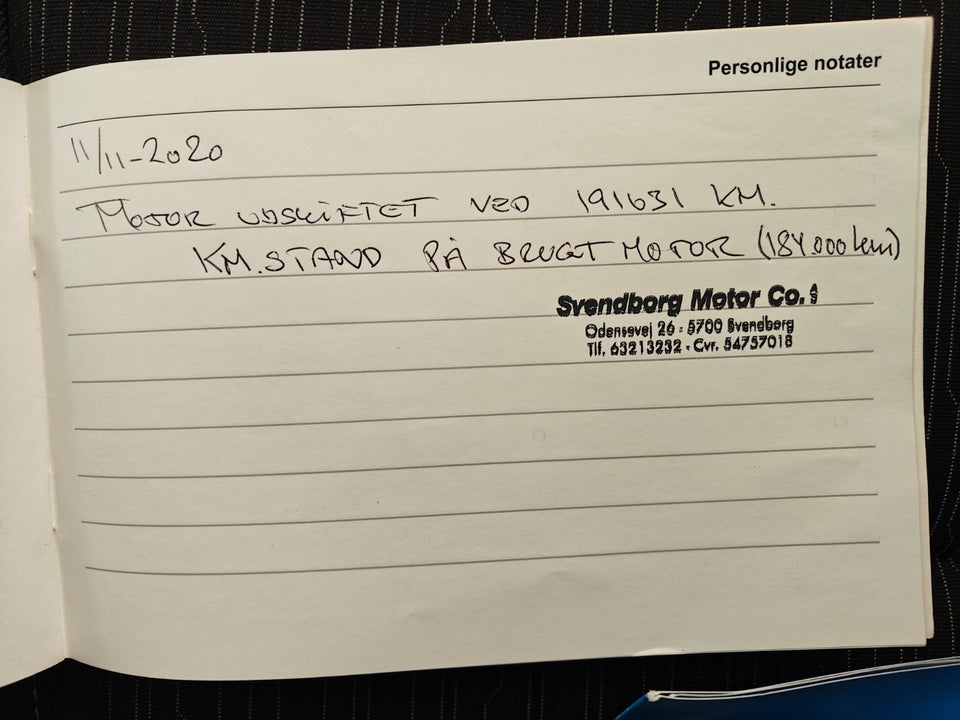 Personlige notater
11/11-2020
MOTOR UDSKIFTET VED 191631 KM.
KM.STAND PÅ BRUGT MOTOR (184.000 km)
Svendborg Motor Co. A/S
Odensevej 26 - 5700 Svendborg
Tlf. 63213232 - Cvr. 54757018